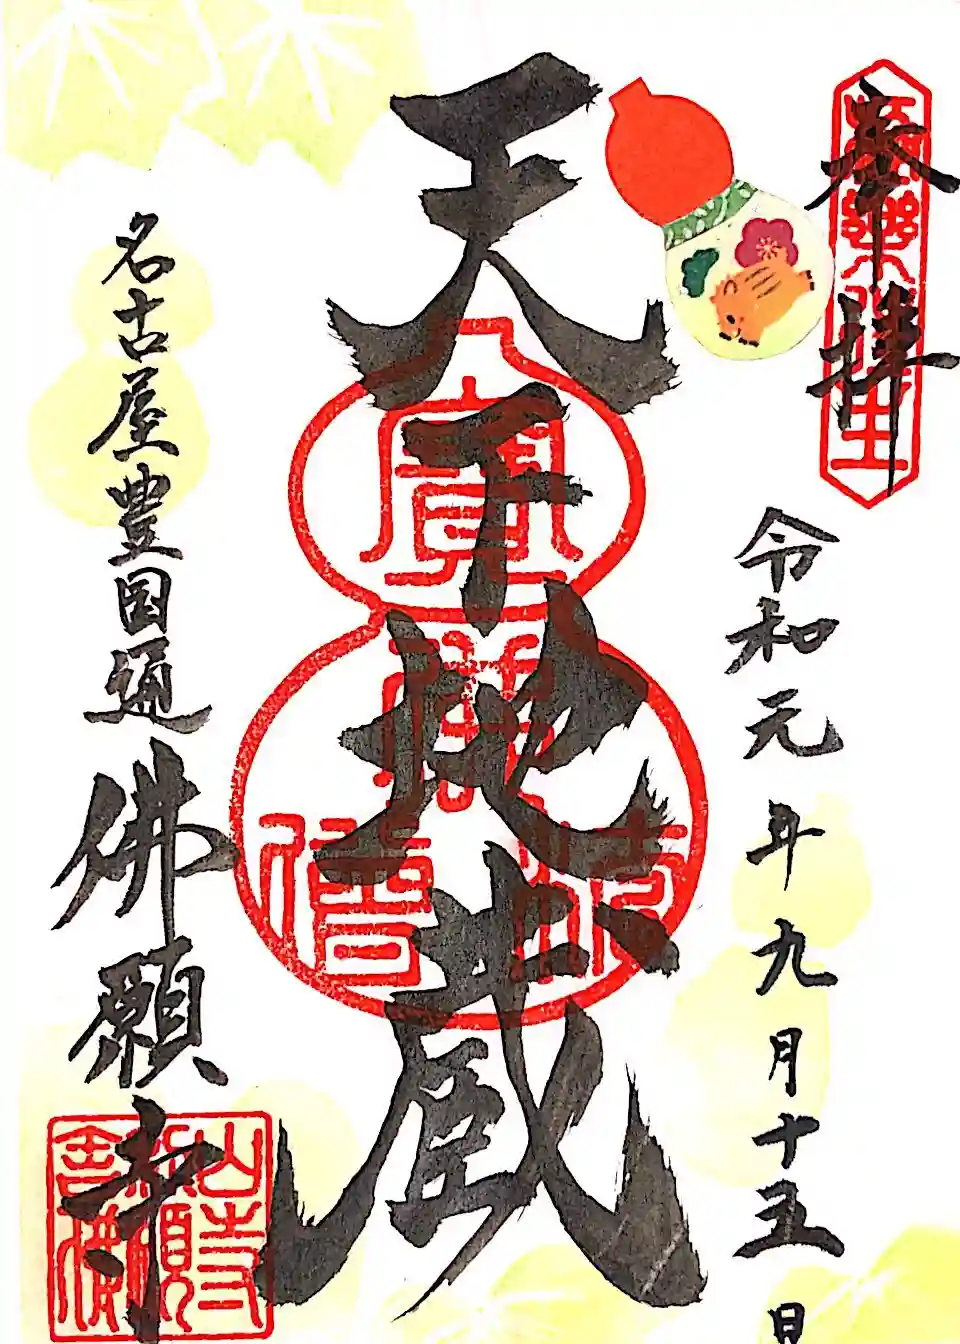 奉拝
令和元年九月十五日
天下地蔵
名古屋豊国通
佛願寺